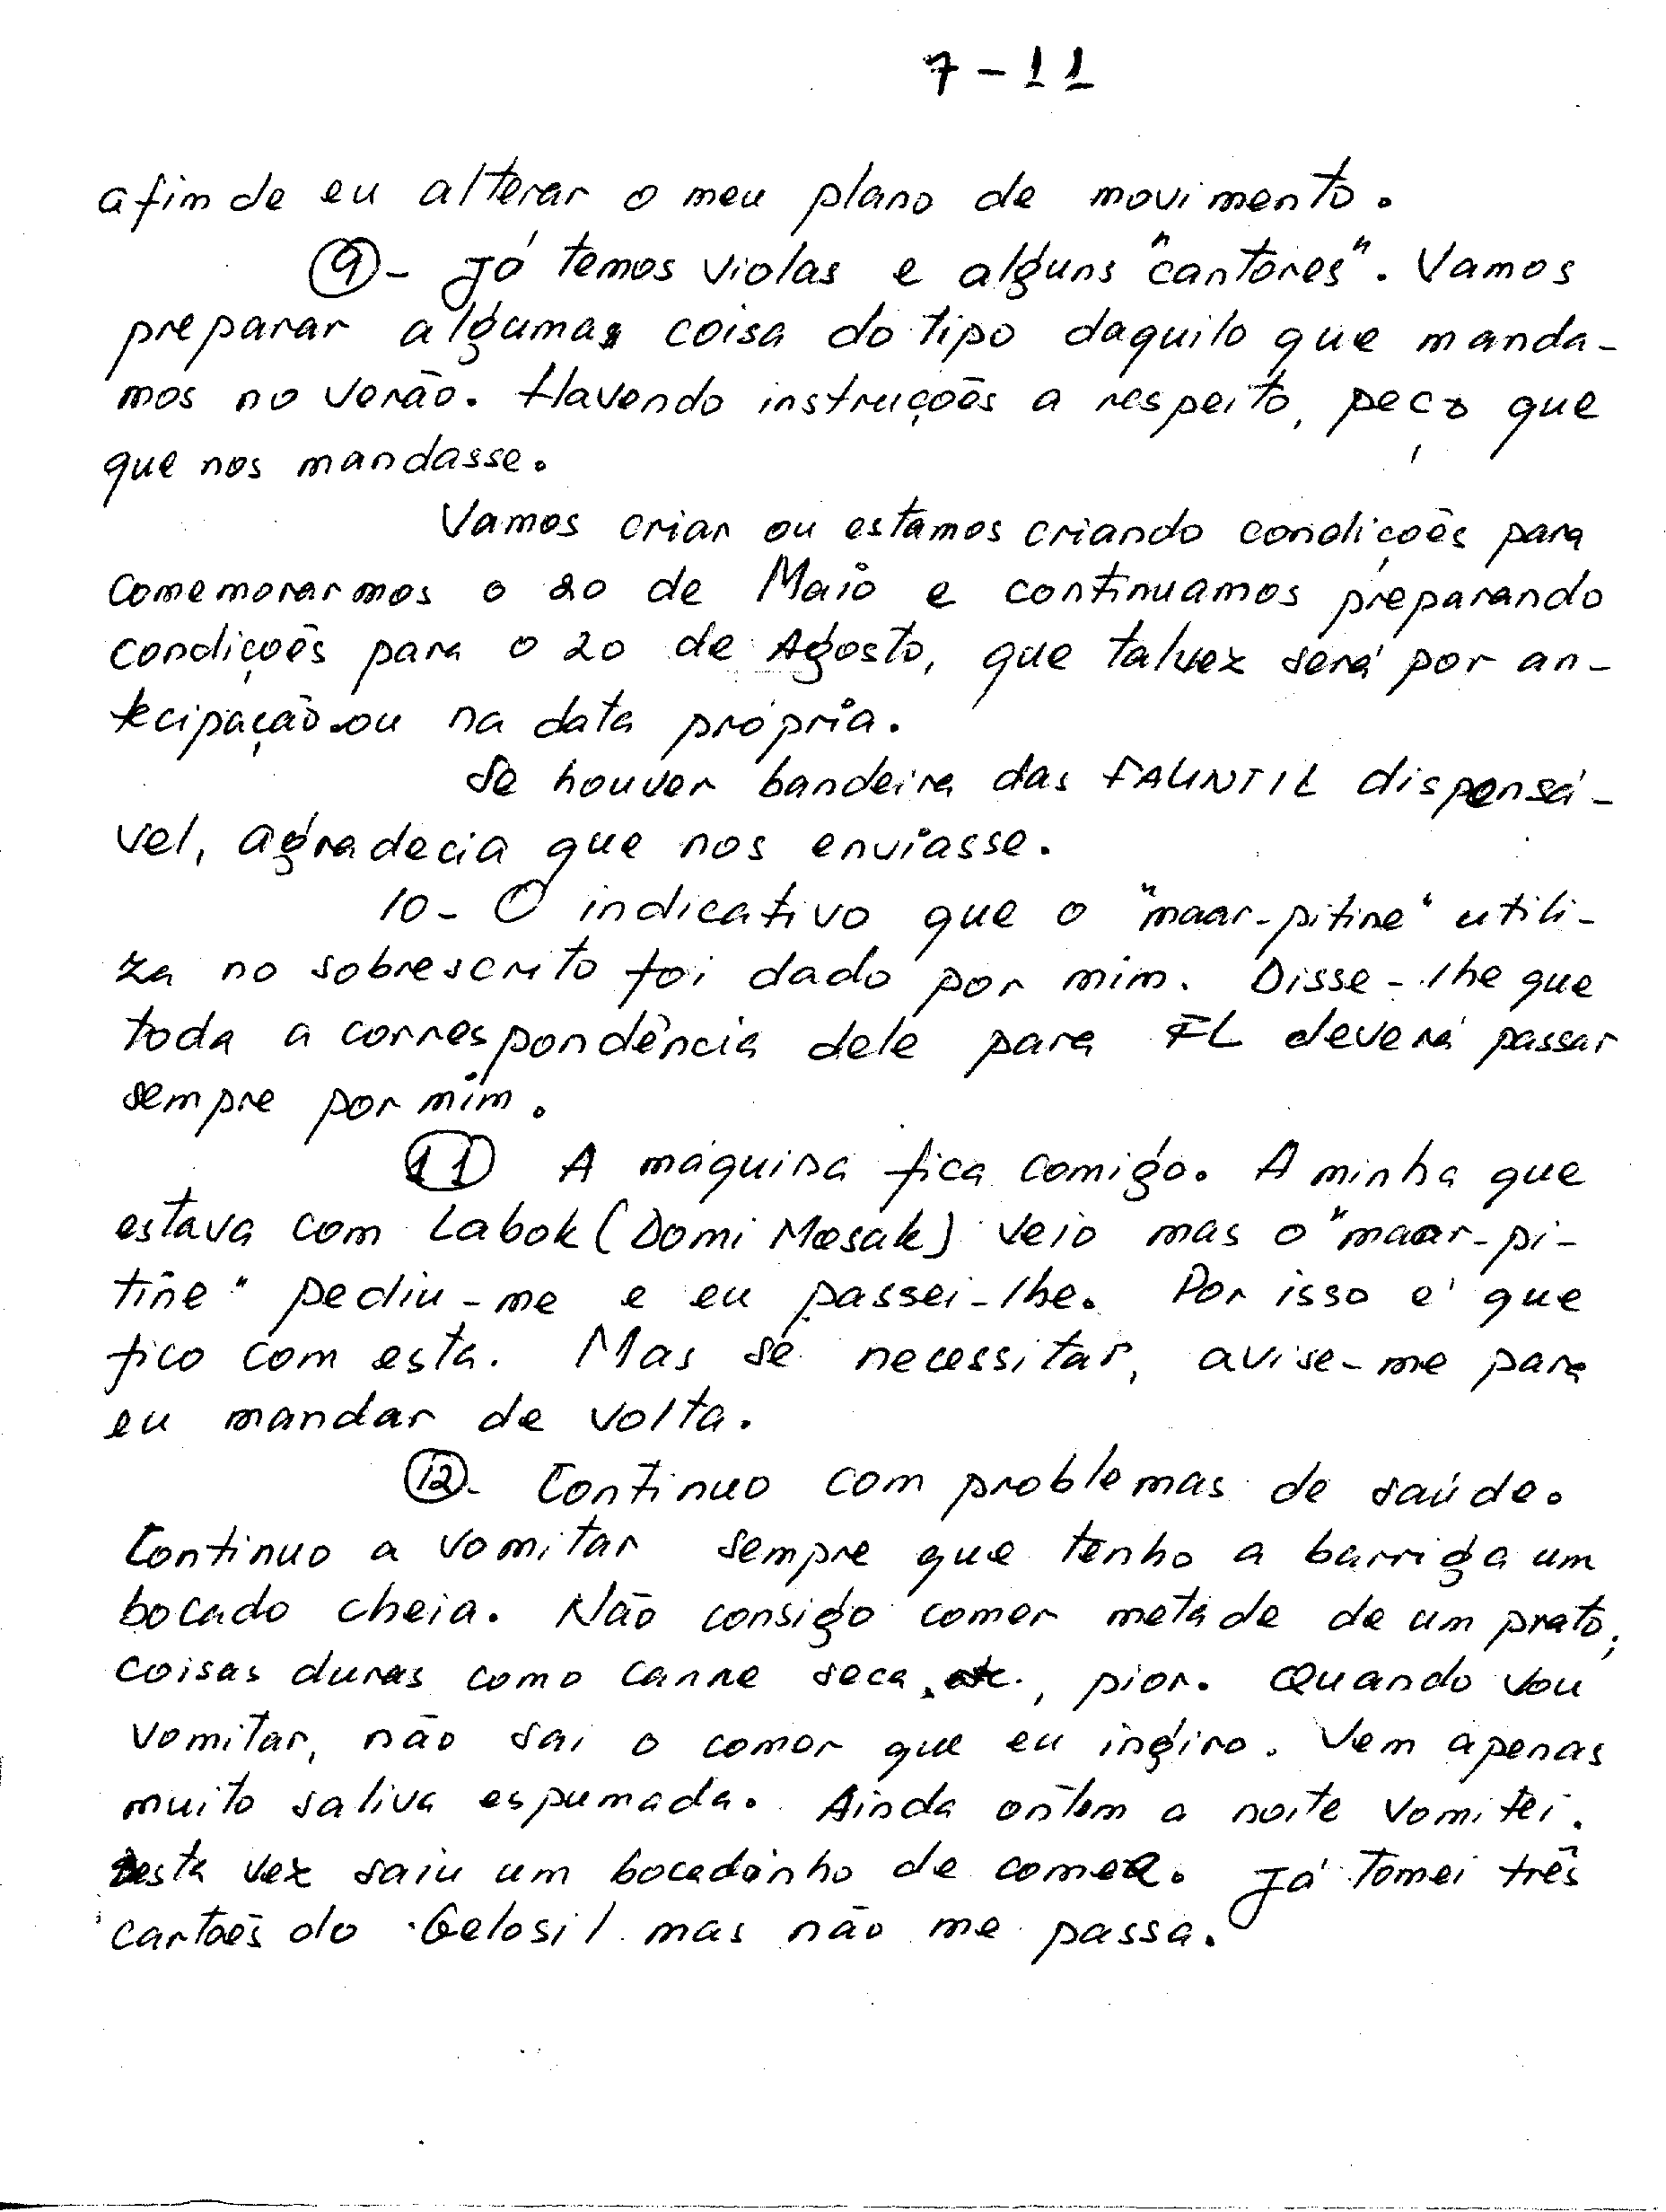 7-11
afim de eu alterar o meu plano de movimento.
9- Já temos violas e alguns "cantores". Vamos
preparar alguma coisa do tipo daquilo que manda-
mos no verão. Havendo instruções a respeito, peço que
que nos mandasse.
Vamos criar ou estamos criando condições para
comemorarmos o 20 de Maio e continuamos preparando
condições para o 20 de Agosto, que talvez será por an-
tecipação ou na data própria.
Se houver bandeira das FALINTIL dispensá-
vel, agradecia que nos enviasse.
10- O indicativo que o "maar-pitine" utili-
za no sobrescrito foi dado por mim. Disse-lhe que
toda a correspondência dele para FL deverá passar
sempre por mim.
11 A máquina fica comigo. A minha que
estava com Labok (Domi Mesak) veio mas o "maar-pi-
tine" pediu-me e eu passei-lhe. Por isso é que
fico com esta. Mas se necessitar, avise-me para
eu mandar de volta.
12- Continuo com problemas de saúde.
Continuo a vomitar sempre que tenho a barriga um
bocado cheia. Não consigo comer metade de um prato;
coisas duras como carne seca, etc., pior. Quando vou
vomitar, não sai o comer que eu ingiro. Vem apenas
muito saliva espumada. Ainda ontem a noite vomitei.
Desta vez saiu um bocadinho de comer. Já tomei três
cartões do Gelosil mas não me passa.